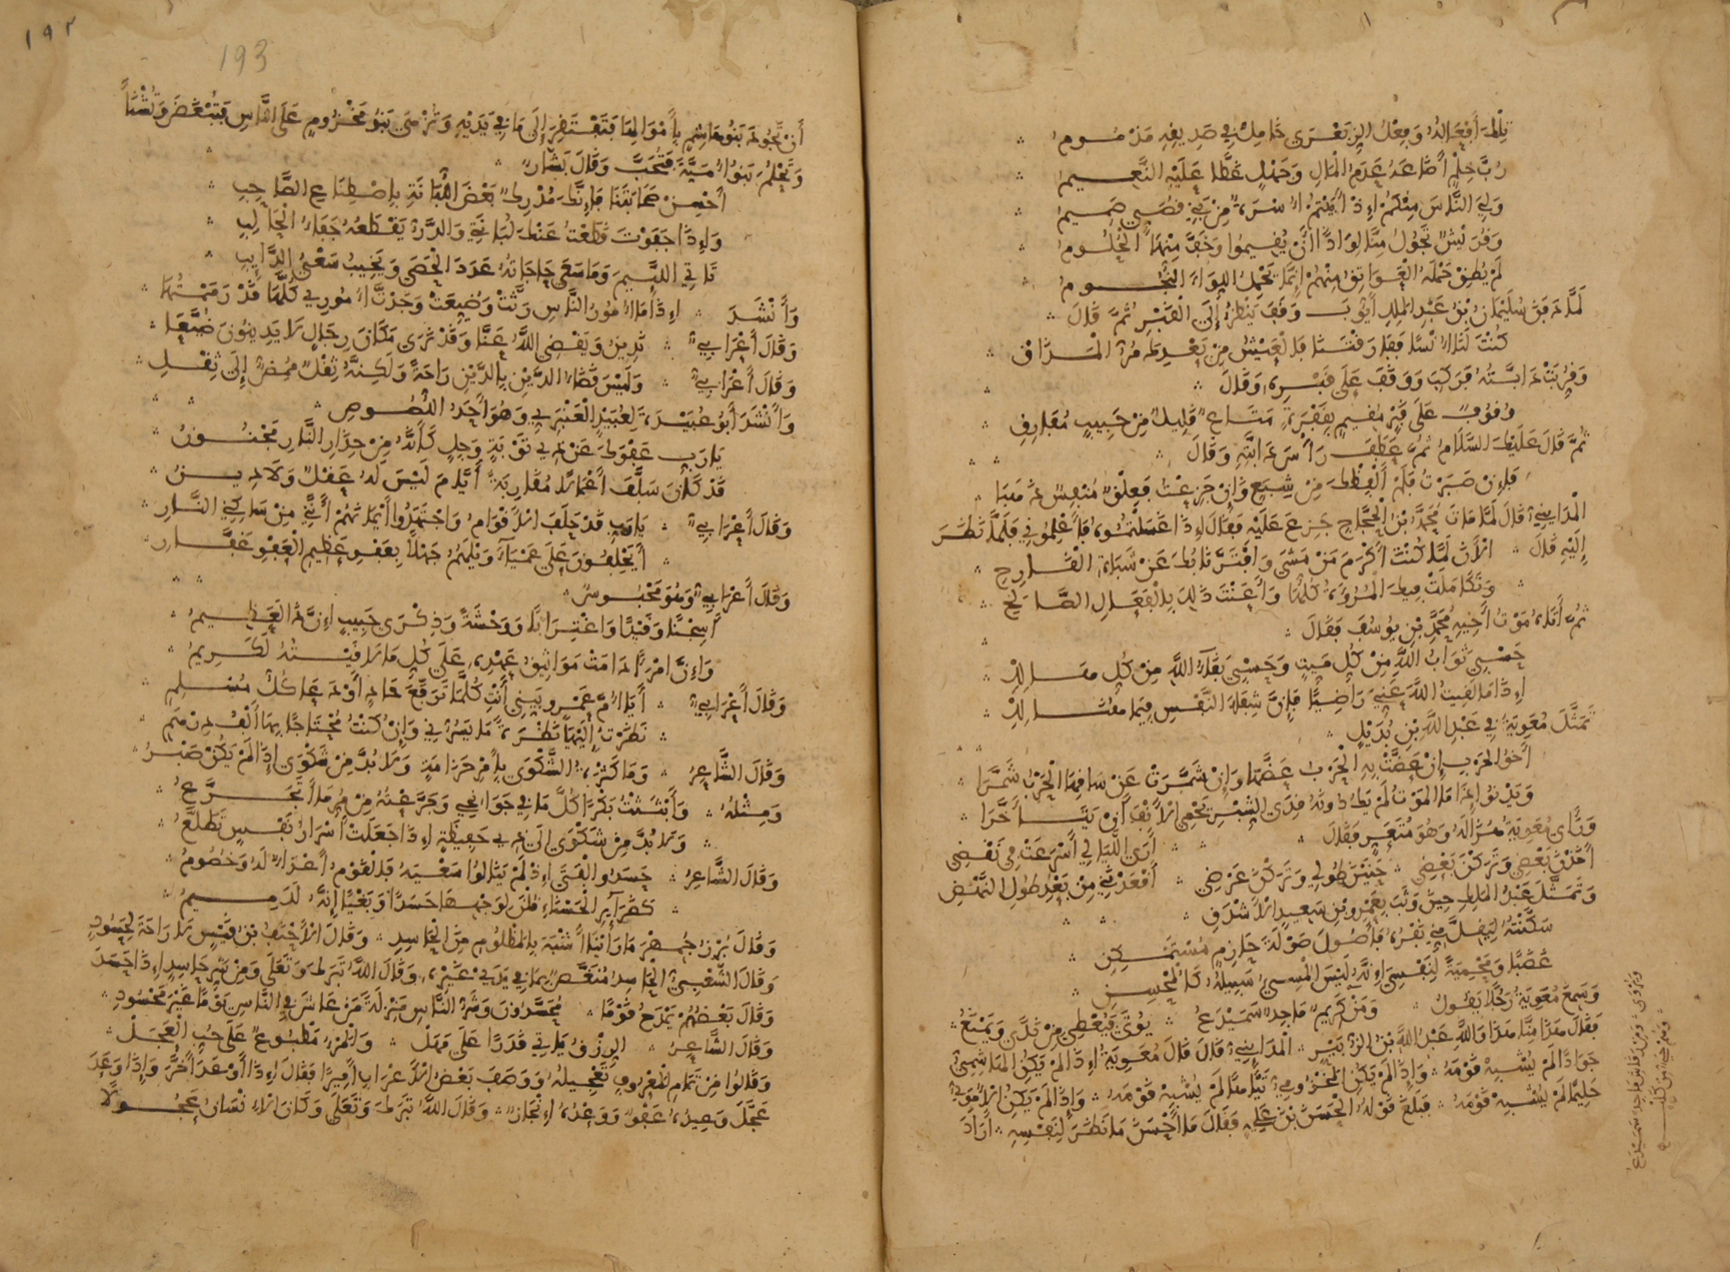 تِلْكَ أَفْعَالُهُ وَفِعْلُ الزِّبَعْرَى خَامِلٌ فِي صَدِيقِهِ مَذْمُومُ
رُبَّ حِلْمٍ أَضَاعَهُ عَدَمُ الْمَالِ وَجَهْلٍ غَطَّا عَلَيْهِ النَّعِيمُ
وَلِيَ النَّاسَ مِنْكُمُ إِذْ أَبَيْتُمُ أُسْرَةٌ مِنْ بَنِي قُصَيٍّ صَمِيمُ
وَقُرَيْشٌ تَجُولُ مِنَّا لِوَاذًا أَنْ يُقِيمُوا وَخَفَّ مِنْهَا الْحُلُومُ
لَمْ تُطِقْ حَمْلَهُ الْعَوَاتِقُ مِنْهُمْ إِنَّمَا يَحْمِلُ اللِّوَاءَ النُّجُومُ
لَمَّا دَفَنَ سُلَيْمَانُ بْنُ عَبْدِ الْمَلِكِ أَيُّوبَ وَقَفَ يَنْظُرُ إِلَى الْقَبْرِ ثُمَّ قَالَ
كُنْتَ لَنَا أُنْسًا فَفَارَقْتَنَا فَالْعَيْشُ مِنْ بَعْدِكَ مُرُّ الْمَذَاقْ
وَقُرِّبَتْ دَابَّتُهُ فَرَكِبَ وَوَقَفَ عَلَى قَبْرِهِ وَقَالَ
وُقُوفٌ عَلَى قَبْرٍ مُقِيمٍ بِقَفْرَةٍ مَتَاعٌ قَلِيلٌ مِنْ حَبِيبٍ مُفَارِقِ
ثُمَّ قَالَ عَلَيْكَ السَّلَامُ ثُمَّ عَطَفَ رَأْسَ دَابَّتِهِ وَقَالَ
فَإِنْ صَبَرْتُ فَلَمْ أَلْفِظْكَ مِنْ شِبَعٍ وَإِنْ جَزِعْتُ فَعِلْقٌ مُنْفِسٌ ذَهَبَا
الْمَدَائِنِيُّ قَالَ لَمَّا مَاتَ مُحَمَّدُ بْنُ الْحَجَّاجِ جَزِعَ عَلَيْهِ فَقَالَ إِذَا غَسَلْتُمُوهُ فَأَعْلِمُونِي فَلَمَّا نَظَرَ
إِلَيْهِ قَالَ الْآنَ لَمَّا كُنْتَ أَكْرَمَ مَنْ مَشَى وَافْتَرَّ نَابُكَ عَنْ شَبَاةِ الْقَارِحِ
وَتَكَامَلَتْ فِيكَ الْمُرُوءَةُ كُلُّهَا وَأَعَنْتَ ذَلِكَ بِالْفَعَالِ الصَّالِحِ
ثُمَّ أَتَاهُ مَوْتُ أَخِيهِ مُحَمَّدِ بْنِ يُوسُفَ فَقَالَ
حَسْبِي ثَوَابُ اللَّهِ مِنْ كُلِّ مَيِّتٍ وَحَسْبِي بَقَاءُ اللَّهِ مِنْ كُلِّ هَالِكِ
إِذَا مَا لَقِيتُ اللَّهَ عَنِّيَ رَاضِيًا فَإِنَّ شِفَاءَ النَّفْسِ فِيمَا هُنَالِكِ
تَمَثَّلَ مُعَوِيَةُ فِي عَبْدِ اللَّهِ بْنِ بُدَيْلٍ
أَخُو الْحَرْبِ إِنْ عَضَّتْ بِهِ الْحَرْبُ عَضَّهَا وَإِنْ شَمَّرَتْ عَنْ سَاقِهَا الْحَرْبُ شَمَّرَا
وَيَدْنُو إِذَا مَا الْمَوْتُ لَمْ يَكُ دُونَهُ قِدَى الشِّبْرِ يَحْمِي الْأَنْفَ أَنْ يَتَأَخَّرَا
وَرَأَى مُعَوِيَةُ هُزَالَهُ وَهُوَ مُتَعَرٍّ فَقَالَ أَرَى اللَّيَالِي أَسْرَعَتْ فِي نَقْضِي
أَخَذْنَ بَعْضِي وَتَرَكْنَ بَعْضِي حَنَيْنَ طُولِي وَتَرَكْنَ عَرْضِي أَقْعَدْنَنِي مِنْ بَعْدِ طُولِ النَّهْضِ
وَتَمَثَّلَ عَبْدُ الْمَلِكِ حِينَ وَثَبَ بِعَمْرِو بْنِ سَعِيدٍ الْأَشْدَقِ
سَكَّنْتُهُ لِيَقِلَّ مِنِّي نَفْرُهُ فَأَصُولَ صَوْلَةَ حَازِمٍ مُسْتَمْكِنِ
غَضَبًا وَمَحْمِيَةً لِنَفْسِي إِنَّهُ لَيْسَ الْمُسِيءُ سَبِيلُهُ كَالْمُحْسِنِ
وَسَمِعَ مُعَوِيَةُ رَجُلًا يَقُولُ وَمَنْ كَرِيمٌ مَاجِدٌ سَمَيْدَعُ يُؤْتَى فَيُعْطِي مِنْ نَدًى وَيَمْنَعُ
فَقَالَ هَذَا مِنَّا هَذَا وَاللَّهِ عَبْدُ اللَّهِ بْنُ الزُّبَيْرِ الْمَدَائِنِيُّ قَالَ قَالَ مُعَوِيَةُ إِذَا لَمْ يَكُنِ الْهَاشِمِيُّ
جَوَادًا لَمْ يُشْبِهْ قَوْمَهُ وَإِذَا لَمْ يَكُنِ الْمَخْزُومِيُّ تَيَّاهًا لَمْ يُشْبِهْ قَوْمَهُ وَإِذَا لَمْ يَكُنِ الْأُمَوِيُّ
حَلِيمًا لَمْ يُشْبِهْ قَوْمَهُ فَبَلَغَ قَوْلُهُ الْحَسَنَ بْنَ عَلِيٍّ فَقَالَ مَا أَحْسَنَ مَا نَظَرَ لِنَفْسِهِ أَرَادَ
193
أَنْ تَجُودَ بَنُو هَاشِمٍ بِأَمْوَالِهَا فَتَفْتَقِرَ إِلَى مَا فِي يَدَيْهِ وَتُزْهَى بَنُو مَخْزُومٍ عَلَى النَّاسِ فَتُبْغَضَ وَتُشْنَأَ
وَتَحْلُمَ بَنُو أُمَيَّةَ فَتُحَبَّ وَقَالَ بَشَّارٌ
أَحْسِنْ صَحَابَتَنَا فَإِنَّكَ مُدْرِكٌ بَعْضَ اللُّبَانَةِ بِاصْطِنَاعِ الصَّاحِبِ
وَإِذَا جَفَوْتَ قَطَعْتُ عَنْكَ لُبَانَتِي وَالدَّرُّ يَقْطَعُهُ جَفَاءُ الْحَالِبِ
تَأْتِي اللَّئِيمَ وَمَا سَعَى حَاجَاتُهُ عَدَدَ الْحَصَى وَيَخِيبُ سَعْيُ الدَّائِبِ
وَأَنْشَدَ إِذَا مَا أُمُورُ النَّاسِ رَثَّتْ وَضُيِّعَتْ وَجَدْتُ أُمُورِي كُلَّهَا قَدْ رَمَمْتُهَا
وَقَالَ أَعْرَابِيٌّ تَدِينُ وَيَقْضِي اللَّهُ عَنَّا وَقَدْ نَرَى مَكَانَ رِجَالٍ لَا يَدِينُونَ ضُيَّعَا
وَقَالَ أَعْرَابِيٌّ وَلَيْسَ قَضَاءُ الدَّيْنِ بِالدَّيْنِ رَاحَةً وَلَكِنَّهُ ثِقْلٌ مُضِرٌّ إِلَى ثِقْلِ
وَأَنْشَدَ أَبُو عُبَيْدَةَ لِعُبَيْدٍ الْعَنْبَرِيِّ وَهُوَ أَحَدُ اللُّصُوصِ
يَا رَبِّ عَفْوَكَ عَنْ ذِي تَوْبَةٍ وَجِلٍ كَأَنَّهُ مِنْ حِذَارِ النَّارِ مَجْنُونُ
قَدْ كَانَ سَلَّفَ أَعْمَالًا مُقَارِبَةً أَيَّامَ لَيْسَ لَهُ عَقْلٌ وَلَا دِينُ
وَقَالَ أَعْرَابِيٌّ يَا رَبِّ قَدْ حَلَفَ الْأَقْوَامُ وَاجْتَهَدُوا أَيْمَانَهُمْ أَنَّنِي مِنْ سَاكِنِي النَّارِ
أَيَحْلِفُونَ عَلَى عَمْيَاءَ وَيْلَهُمُ جَهْلًا بِعَفْوِ عَظِيمِ الْعَفْوِ غَفَّارِ
وَقَالَ أَعْرَابِيٌّ وَهُوَ مَحْبُوسٌ
أَسِجْنًا وَقَيْدًا وَاغْتِرَابًا وَوَحْشَةً وَذِكْرَى حَبِيبٍ إِنَّ ذَا لَعَظِيمُ
وَإِنَّ امْرَأً دَامَتْ مَوَاثِيقُ عَهْدِهِ عَلَى كُلِّ مَا لَاقَيْتُهُ لَكَرِيمُ
وَقَالَ أَعْرَابِيٌّ أَيَا أُمَّ عَمْرٍو بَيِّنِي أَنْتِ كُلَّمَا تَرَفَّعَ حَادٍ أَوْ دَعَا كُلُّ مُسْلِمِ
نَظَرْتُ إِلَيْهَا نَظْرَةً مَا يَسُرُّنِي وَإِنْ كُنْتُ مُحْتَاجًا بِهَا أَلْفُ دِرْهَمِ
وَقَالَ الشَّاعِرُ وَمَا كَثْرَةُ الشَّكْوَى بِأَمْرِ حَزَامَةٍ وَلَا بُدَّ مِنْ شَكْوَى إِذَا لَمْ يَكُنْ صَبْرُ
وَمِثْلُهُ وَأَبْثَثْتُ بَكْرًا كُلَّ مَا فِي جَوَانِحِي وَجَرَّعْتُهُ مِنْ مُرِّ مَا أَتَجَرَّعُ
وَلَا بُدَّ مِنْ شَكْوَى إِلَى ذِي حَفِيظَةٍ إِذَا جَعَلَتْ أَسْرَارُ نَفْسٍ تَطَلَّعُ
وَقَالَ الشَّاعِرُ حَسَدُوا الْفَتَى إِذْ لَمْ يَنَالُوا سَعْيَهُ فَالْقَوْمُ أَعْدَاءٌ لَهُ وَخُصُومُ
كَضَرَائِرِ الْحَسْنَاءِ قُلْنَ لِوَجْهِهَا حَسَدًا وَبَغْيًا إِنَّهُ لَدَمِيمُ
وَقَالَ بُزُرْجُمِهْرَ مَا رَأَيْنَا أَشْبَهَ بِالْمَظْلُومِ مِنَ الْحَاسِدِ وَقَالَ الْأَحْنَفُ بْنُ قَيْسٍ لَا رَاحَةَ لِحَسُودٍ
وَقَالَ الشَّعْبِيُّ الْحَاسِدُ مُنَغَّصٌ بِمَا فِي يَدَيْ غَيْرِهِ وَقَالَ اللَّهُ تَبَرَكَ وَتَعَلَى وَمِنْ شَرِّ حَاسِدٍ إِذَا حَسَدَ
وَقَالَ بَعْضُهُمْ يَمْدَحُ قَوْمًا مُحَسَّدُونَ وَشَرُّ النَّاسِ مَنْزِلَةً مَنْ عَاشَ فِي النَّاسِ يَوْمًا غَيْرَ مَحْسُودِ
وَقَالَ الشَّاعِرُ الرِّزْقُ يَأْتِي قَدَرًا عَلَى مَهَلْ وَالْمَرْءُ مَطْبُوعٌ عَلَى حُبِّ الْعَجَلْ
وَقَالُوا مِنْ تَمَامِ الْمَعْرُوفِ تَعْجِيلُهُ وَوَصَفَ بَعْضُ الْأَعْرَابِ أَمِيرًا فَقَالَ إِذَا أَوْعَدَ أَخَّرَ وَإِذَا وَعَدَ
عَجَّلَ وَعِيدُهُ عَفْوٌ وَوَعْدُهُ إِنْجَازٌ وَقَالَ اللَّهُ تَبَرَكَ وَتَعَلَى وَكَانَ الْإِنْسَانُ عَجُولًا